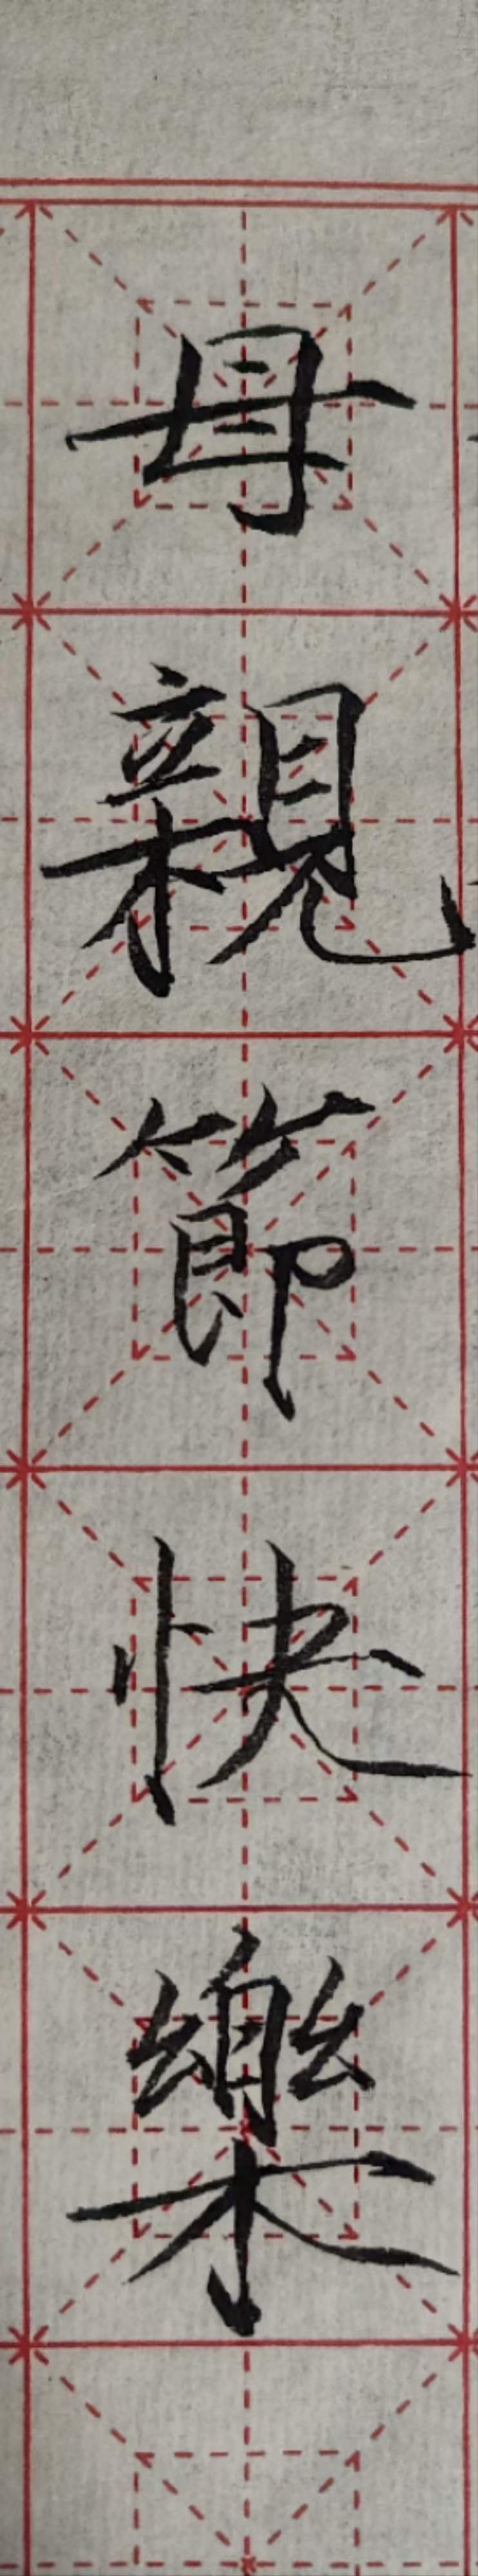 母親節快樂